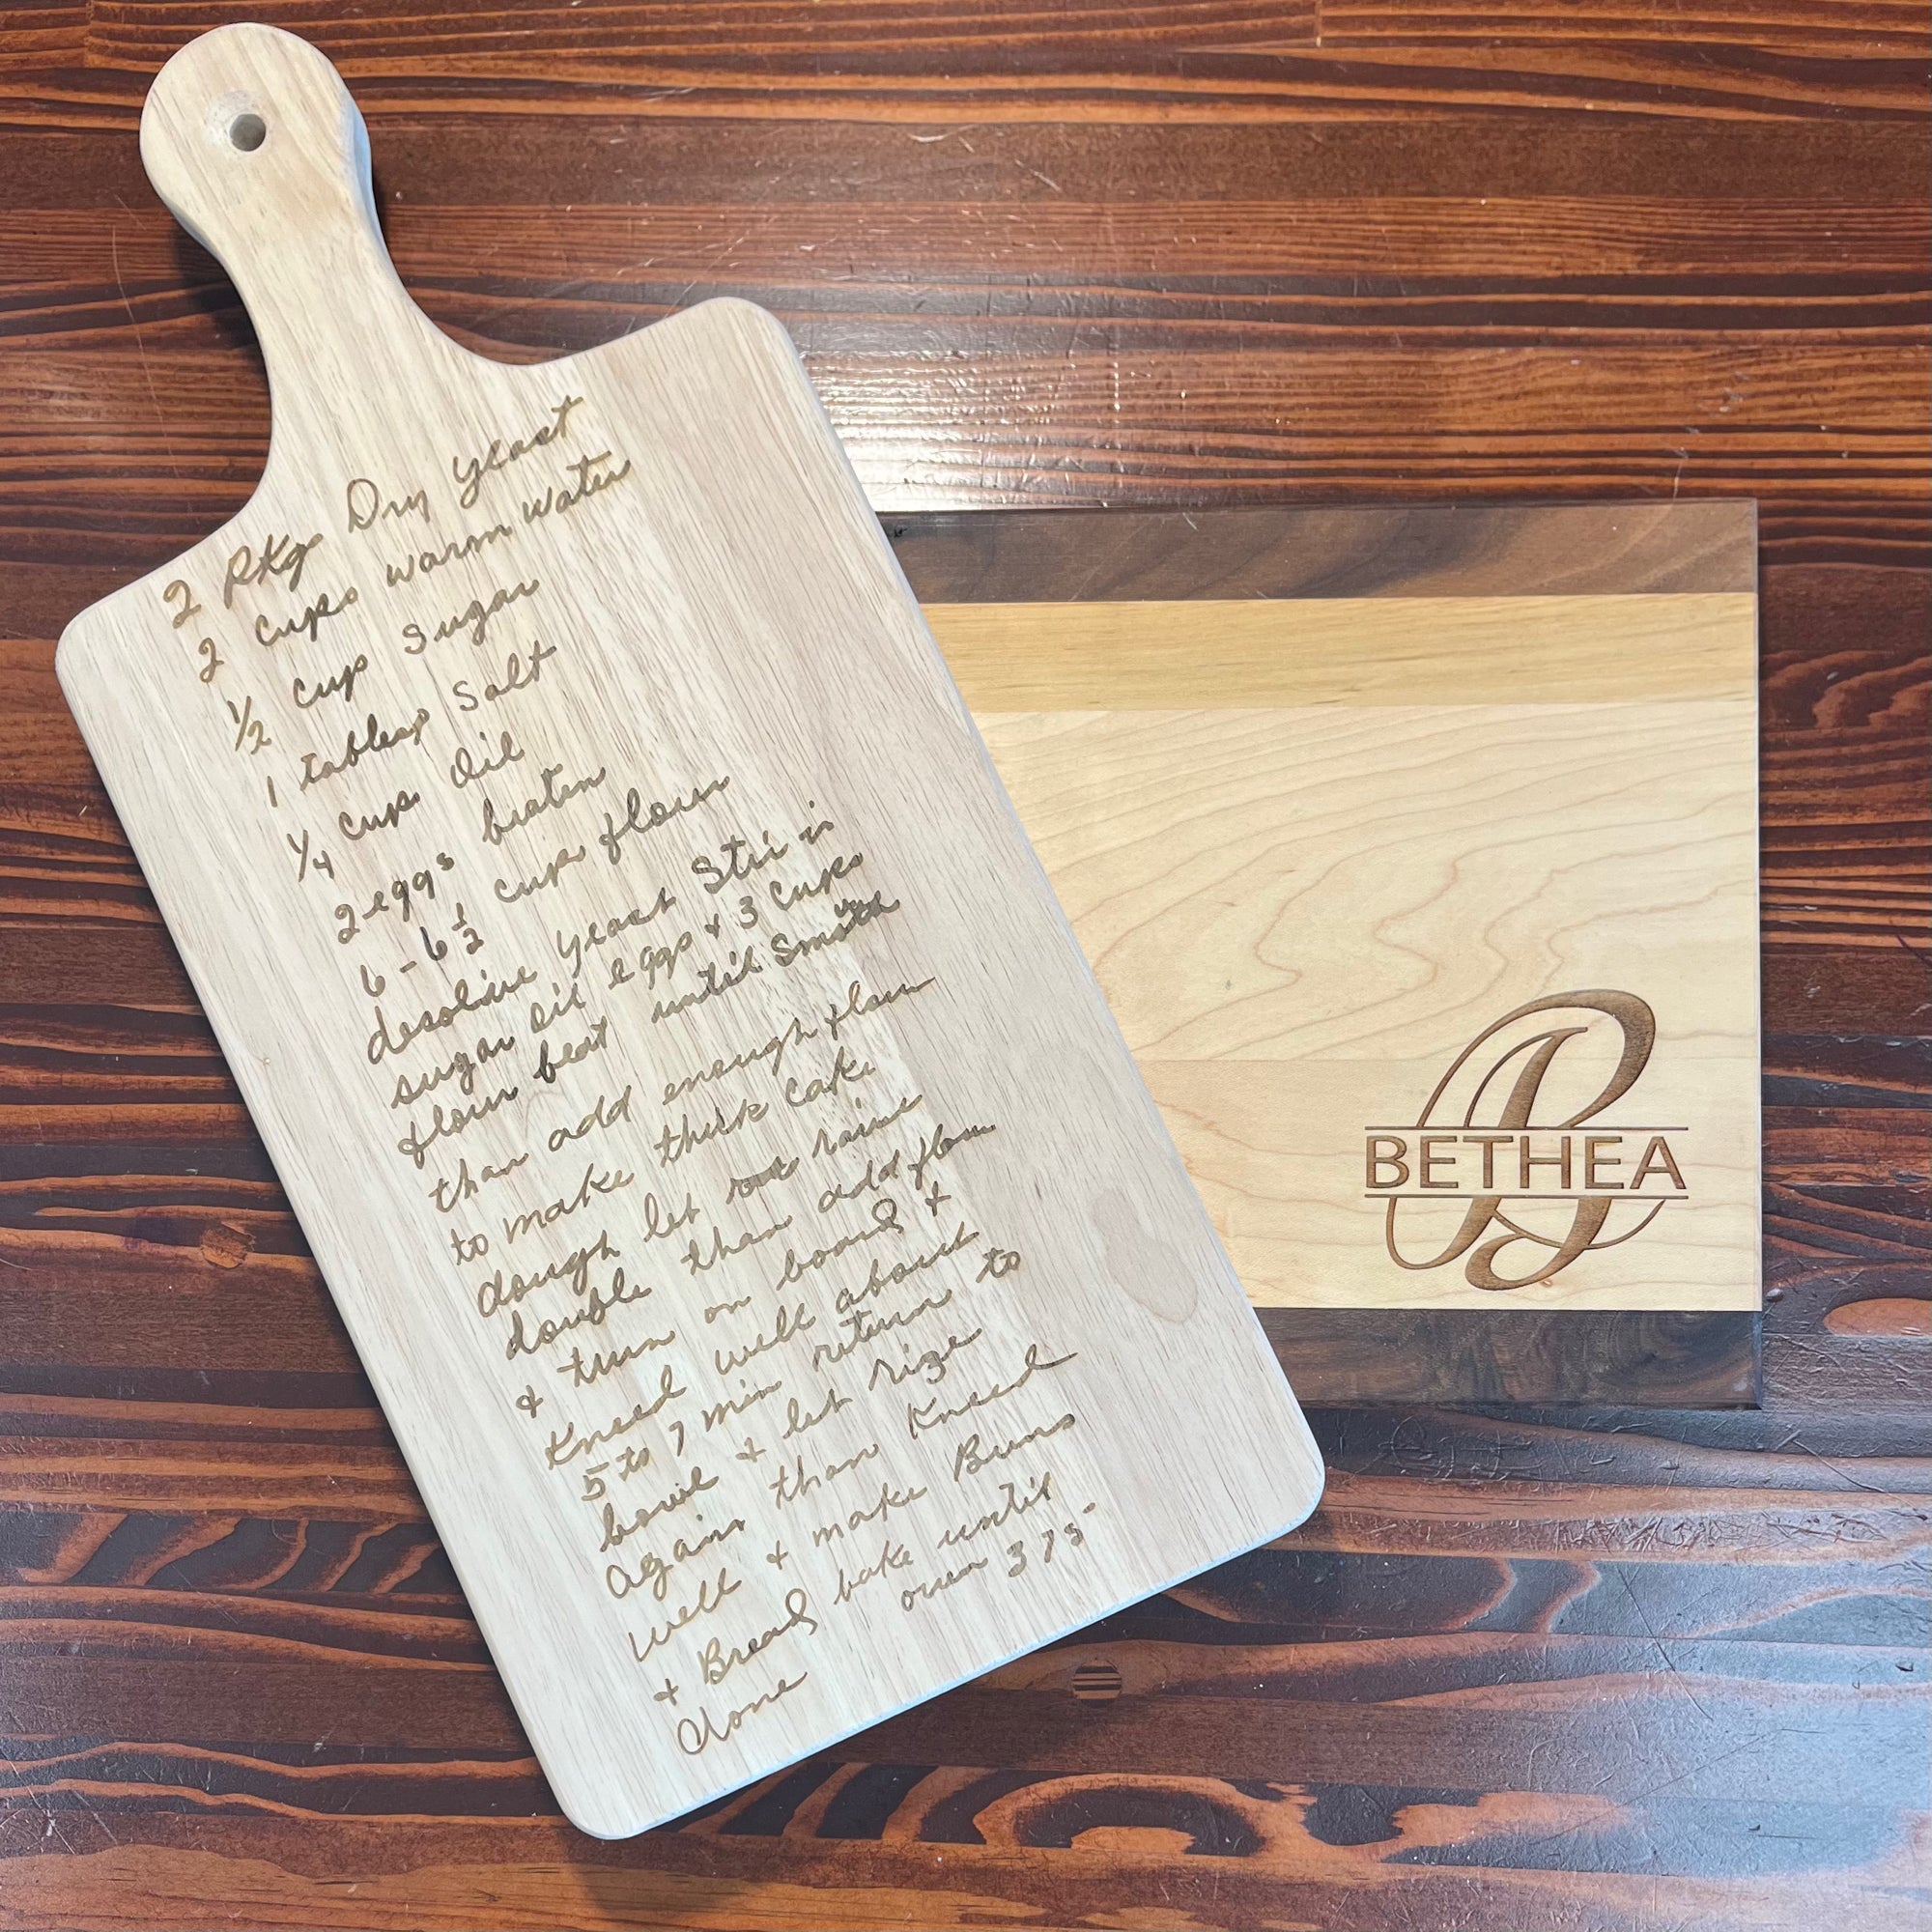 2 Pkgs Dry yeast
2 cups warm water
1/2 cup Sugar
1 tablesp Salt
1/4 cup Oil
2 eggs beaten
6 - 6 1/2 cups flour
desolive yeast Stir in
sugar oil eggs + 3 cups
flour beat until Smooth
than add enough flour
to make thick cake
dough let raise
double than add flour
+ turn on board +
Kneed well about
5 to 7 min return to
bowl + let rize
again than Kneed
well + make Buns
+ Bread bake until
done oven 375-
B
BETHEA